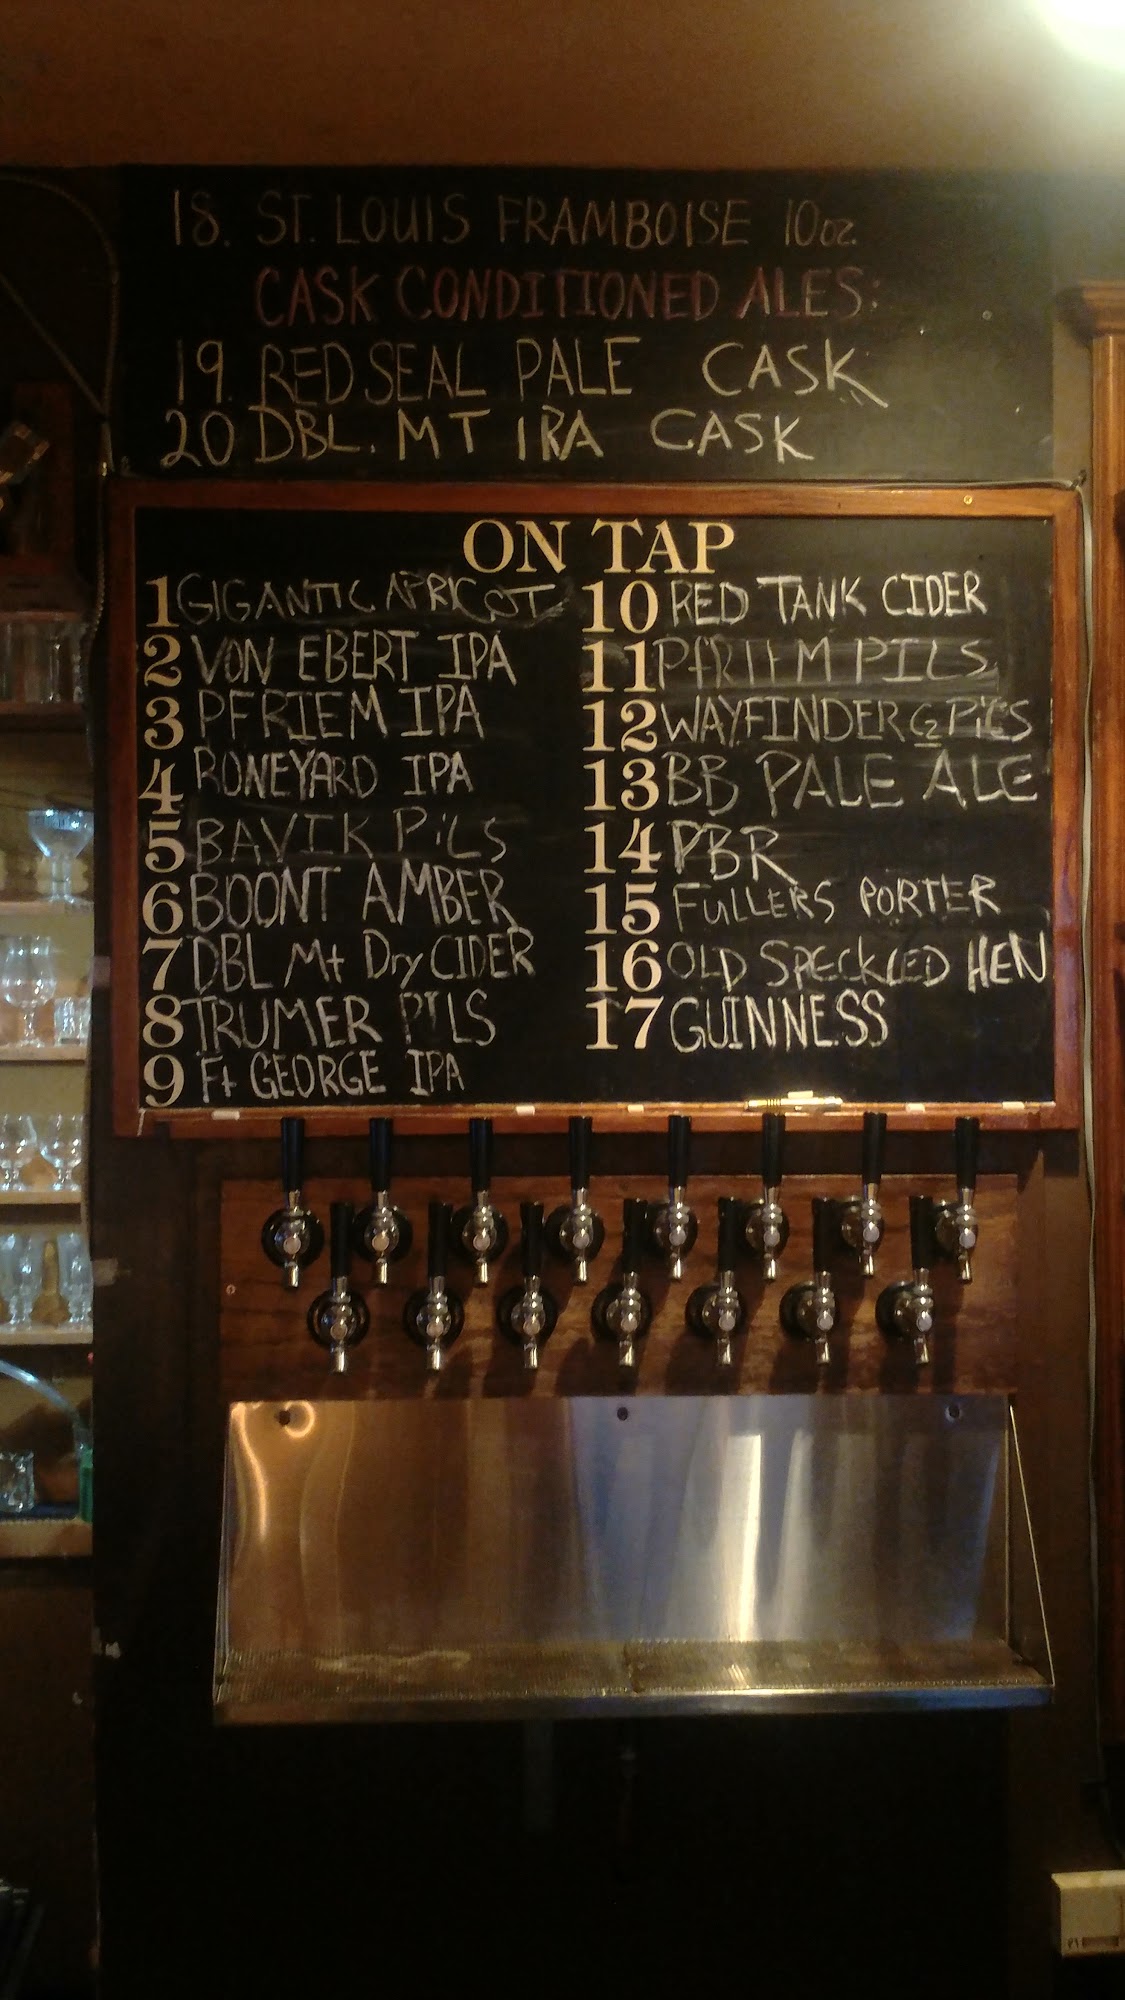 18. ST. LOUIS FRAMBOISE 10oz.
CASK CONDITIONED ALES:
19. RED SEAL PALE CASK
20 DBL. MT IRA CASK
ON TAP
1 GIGANTIC APRICOT
2 VON EBERT IPA
3 PFRIEM IPA
4 BONEYARD IPA
5 BAVIK PiLS
6 BOONT AMBER
7 DBL Mt Dry CIDER
8 TRUMER PILS
9 Ft GEORGE IPA
10 RED TANK CIDER
11 PFRIEM PILS
12 WAYFINDER CZ PiLS
13 BB PALE ALE
14 PBR
15 FULLERS PORTER
16 OLD SPECKLED HEN
17 GUINNESS